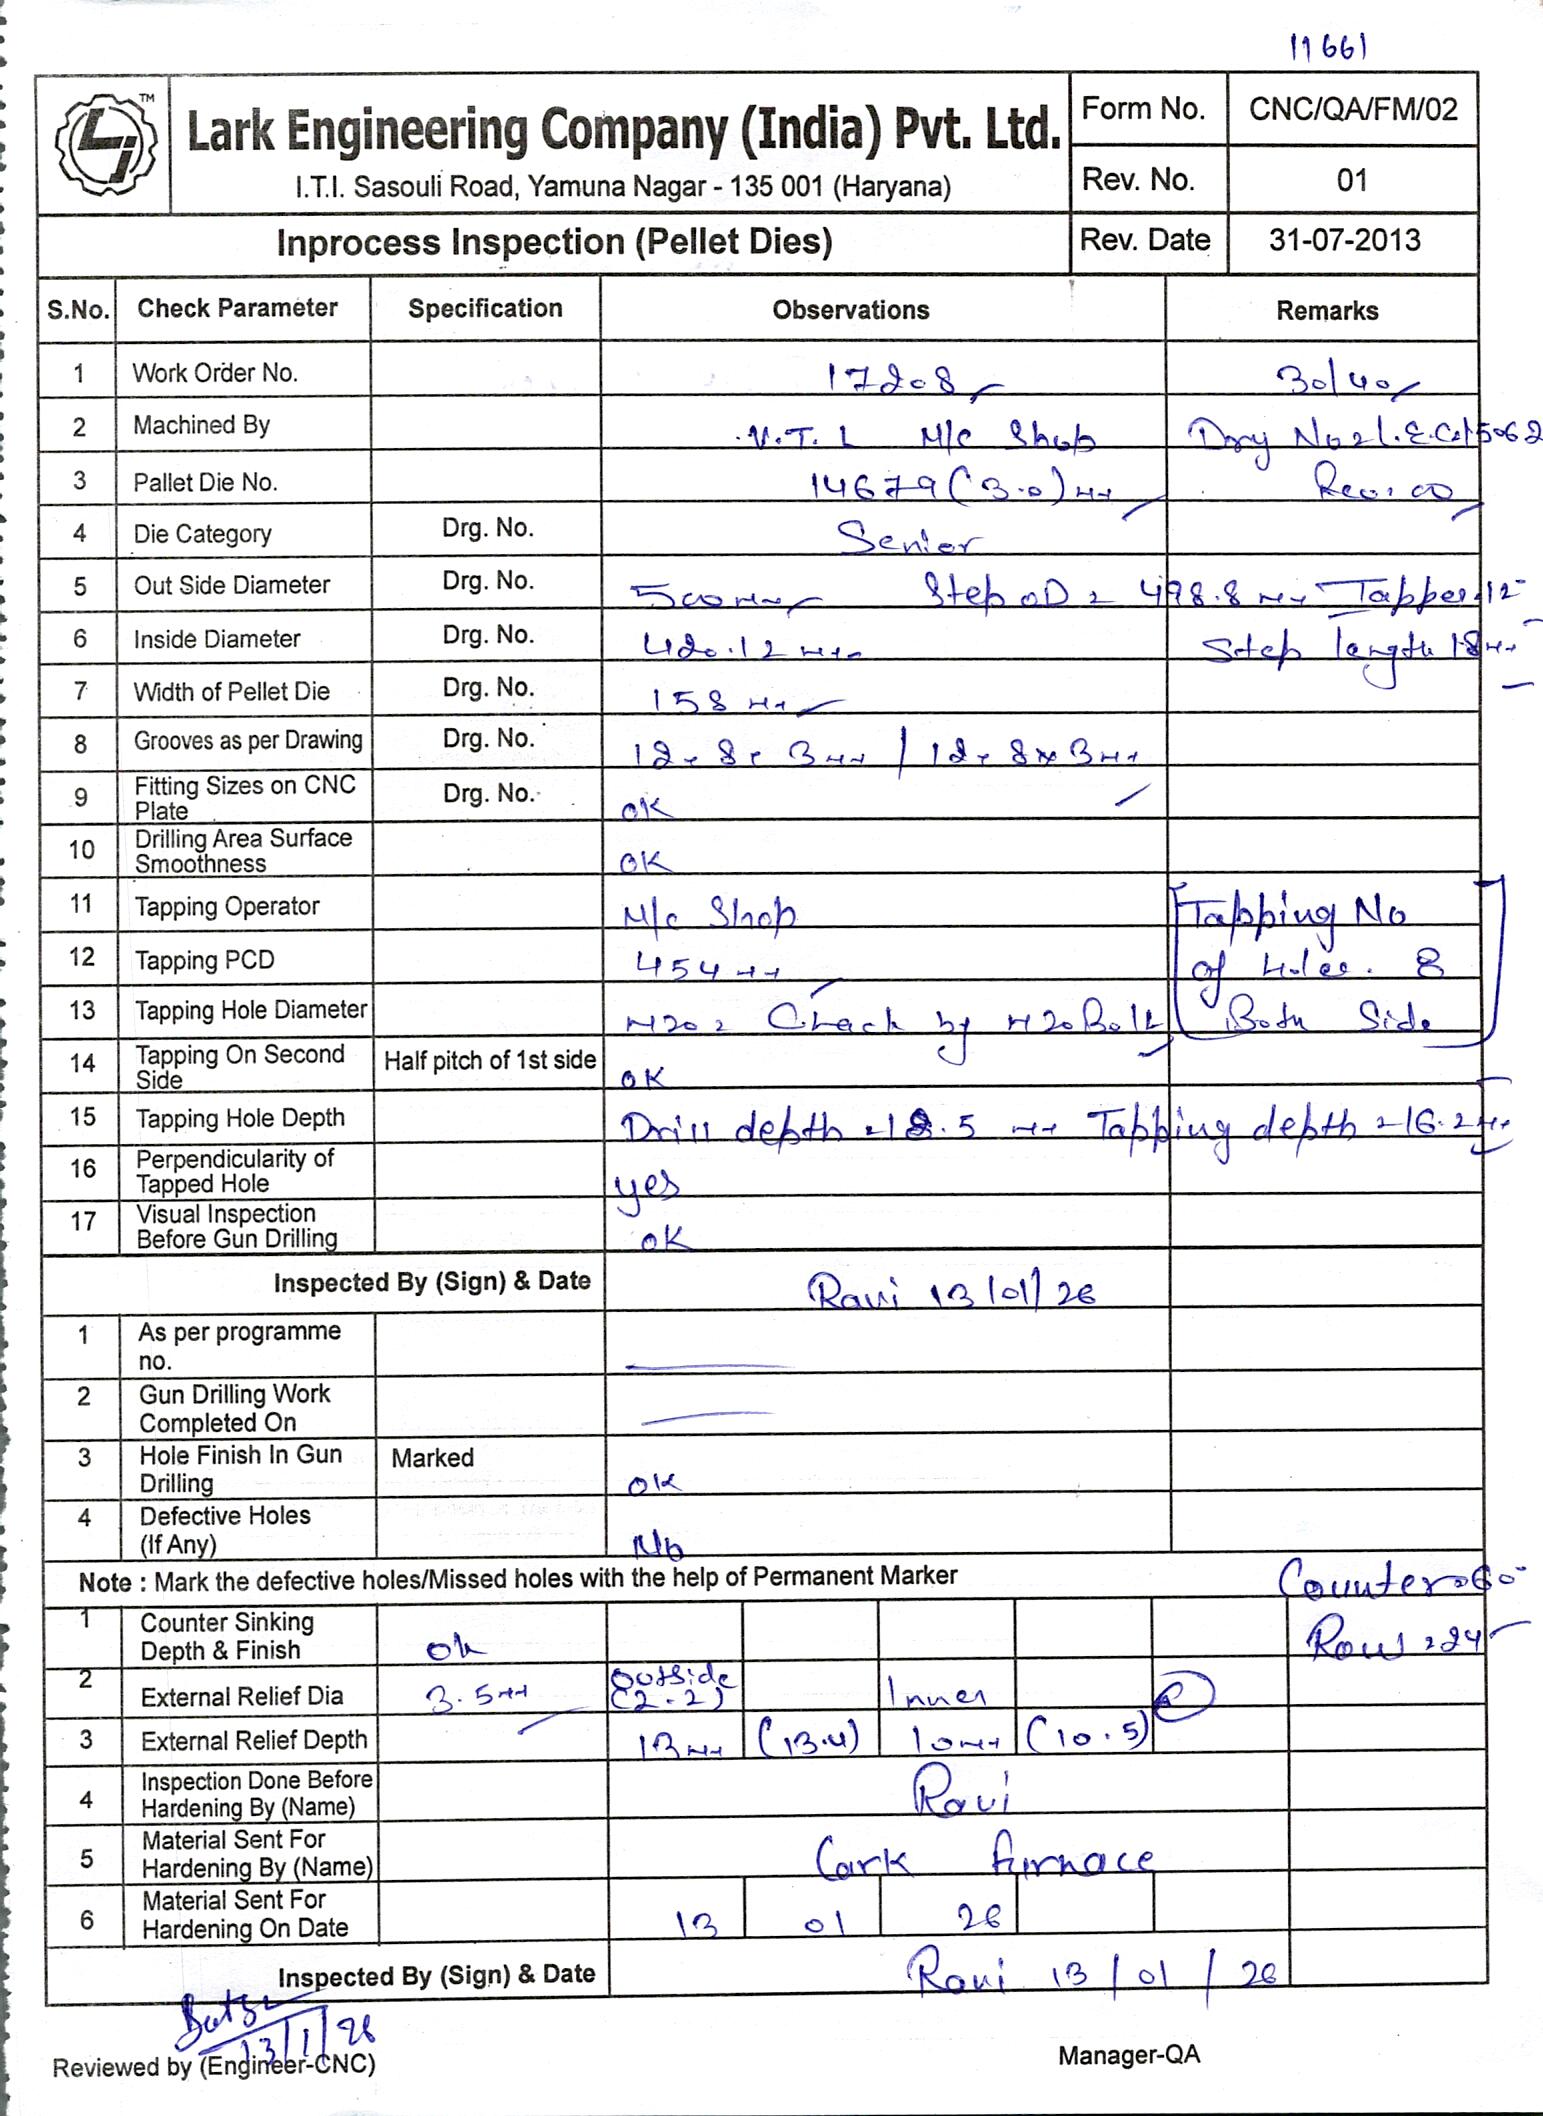 11661
TM
Lark Engineering Company (India) Pvt. Ltd.
I.T.I. Sasouli Road, Yamuna Nagar - 135 001 (Haryana)
Form No. CNC/QA/FM/02
Rev. No. 01
Inprocess Inspection (Pellet Dies) Rev. Date 31-07-2013
S.No. Check Parameter Specification Observations Remarks
1 Work Order No. 17208 30/40
2 Machined By V.T.L M/c Shop Drg No=L.E.C-15062
3 Pallet Die No. 14679 (3.0) mm Rev: 00
4 Die Category Drg. No. Senior
5 Out Side Diameter Drg. No. 500 mm Step OD = 498.8 mm Tapper 12
6 Inside Diameter Drg. No. 420.12 mm Step length 18 mm
7 Width of Pellet Die Drg. No. 158 mm
8 Grooves as per Drawing Drg. No. 12 x 8 x 3 mm / 12 x 8 x 3 mm
9 Fitting Sizes on CNC Plate Drg. No. OK
10 Drilling Area Surface Smoothness OK
11 Tapping Operator M/c Shop Tapping No
12 Tapping PCD 454 mm of Holes. 8
13 Tapping Hole Diameter M20 = Check by M20 Bolt Both Side
14 Tapping On Second Side Half pitch of 1st side OK
15 Tapping Hole Depth Drill depth = 18.5 mm Tapping depth = 16.2 mm
16 Perpendicularity of Tapped Hole yes
17 Visual Inspection Before Gun Drilling OK
Inspected By (Sign) & Date Ravi 13/01/26
1 As per programme no.
2 Gun Drilling Work Completed On
3 Hole Finish In Gun Drilling Marked OK
4 Defective Holes (If Any) No
Note : Mark the defective holes/Missed holes with the help of Permanent Marker Counter = 60
1 Counter Sinking Depth & Finish ok Row = 24
2 External Relief Dia 3.5 mm Outside (2-2) Inner
3 External Relief Depth 13 mm (13.4) 10 mm (10.5)
4 Inspection Done Before Hardening By (Name) Ravi
5 Material Sent For Hardening By (Name) Lark furnace
6 Material Sent For Hardening On Date 13 01 26
Inspected By (Sign) & Date Ravi 13/01/26
13/1/26
Reviewed by (Engineer-CNC) Manager-QA